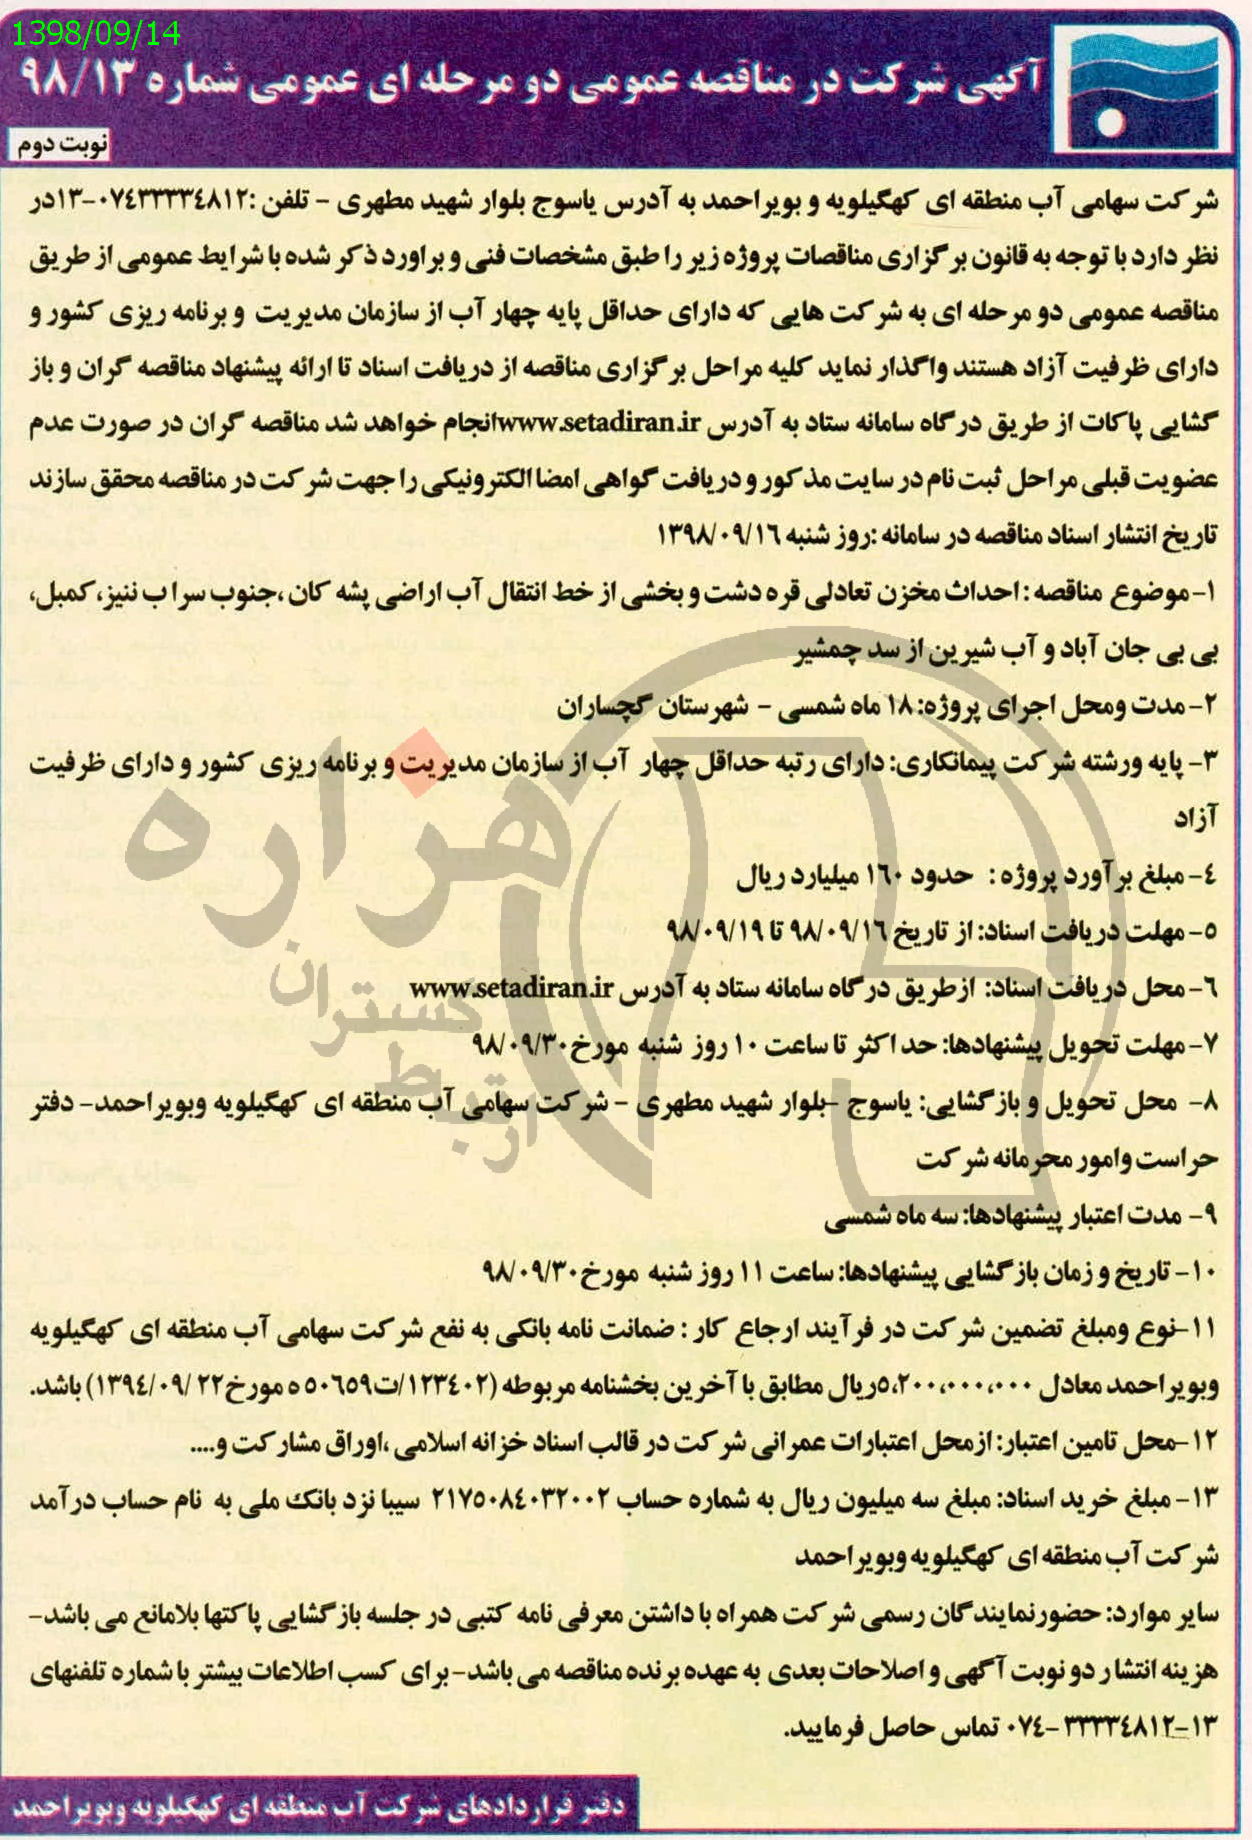 1398/09/14
آگهی شرکت در مناقصه عمومی دو مرحله ای عمومی شماره ۹۸/۱۳
نوبت دوم
شرکت سهامی آب منطقه ای کهگیلویه و بویراحمد به آدرس یاسوج بلوار شهید مطهری - تلفن :۰۷٤۳۳۳۳٤۸۱۲-۱۳در
نظر دارد با توجه به قانون برگزاری مناقصات پروژه زیر را طبق مشخصات فنی و براورد ذکر شده با شرایط عمومی از طریق
مناقصه عمومی دو مرحله ای به شرکت هایی که دارای حداقل پایه چهار آب از سازمان مدیریت و برنامه ریزی کشور و
دارای ظرفیت آزاد هستند واگذار نماید کلیه مراحل برگزاری مناقصه از دریافت اسناد تا ارائه پیشنهاد مناقصه گران و باز
گشایی پاکات از طریق درگاه سامانه ستاد به آدرس www.setadiran.irانجام خواهد شد مناقصه گران در صورت عدم
عضویت قبلی مراحل ثبت نام در سایت مذکور و دریافت گواهی امضا الکترونیکی را جهت شرکت در مناقصه محقق سازند
تاریخ انتشار اسناد مناقصه در سامانه :روز شنبه ۱۳۹۸/۰۹/۱٦
۱- موضوع مناقصه : احداث مخزن تعادلی قره دشت و بخشی از خط انتقال آب اراضی پشه کان ،جنوب سراب ننیز، کمبل،
بی بی جان آباد و آب شیرین از سد چمشیر
۲- مدت ومحل اجرای پروژه: ۱۸ ماه شمسی - شهرستان گچساران
۳- پایه ورشته شرکت پیمانکاری: دارای رتبه حداقل چهار آب از سازمان مدیریت و برنامه ریزی کشور و دارای ظرفیت
آزاد
٤- مبلغ برآورد پروژه : حدود ۱٦۰ میلیارد ریال
۵- مهلت دریافت اسناد: از تاریخ ۹۸/۰۹/۱٦ تا ۹۸/۰۹/۱۹
٦- محل دریافت اسناد: ازطریق درگاه سامانه ستاد به آدرس www.setadiran.ir
۷- مهلت تحویل پیشنهادها: حداکثر تا ساعت ۱۰ روز شنبه مورخ۹۸/۰۹/۳۰
۸- محل تحویل و بازگشایی: یاسوج -بلوار شهید مطهری - شرکت سهامی آب منطقه ای کهگیلویه وبویراحمد- دفتر
حراست وامور محرمانه شرکت
۹- مدت اعتبار پیشنهادها: سه ماه شمسی
۱۰- تاریخ و زمان بازگشایی پیشنهادها: ساعت ۱۱ روز شنبه مورخ۹۸/۰۹/۳۰
۱۱-نوع ومبلغ تضمین شرکت در فرآیند ارجاع کار : ضمانت نامه بانکی به نفع شرکت سهامی آب منطقه ای کهگیلویه
وبویراحمد معادل ۵،۲۰۰،۰۰۰،۰۰۰ریال مطابق با آخرین بخشنامه مربوطه (۱۲۳٤۰۲/ت۵۰٦۵۹ ه مورخ۱۳۹٤/۰۹/۲۲) باشد.
۱۲-محل تامین اعتبار: ازمحل اعتبارات عمرانی شرکت در قالب اسناد خزانه اسلامی ،اوراق مشارکت و....
۱۳- مبلغ خرید اسناد: مبلغ سه میلیون ریال به شماره حساب ۲۱۷۵۰۸٤۰۳۲۰۰۲ سیبا نزد بانک ملی به نام حساب درآمد
شرکت آب منطقه ای کهگیلویه وبویراحمد
سایر موارد: حضورنمایندگان رسمی شرکت همراه با داشتن معرفی نامه کتبی در جلسه بازگشایی پاکتها بلامانع می باشد-
هزینه انتشار دو نوبت آگهی و اصلاحات بعدی به عهده برنده مناقصه می باشد- برای کسب اطلاعات بیشتر با شماره تلفنهای
۱۳-۳۳۳۳٤۸۱۲ -۰۷٤ تماس حاصل فرمایید.
هزاره
گستران
ارتباط
دفتر قراردادهای شرکت آب منطقه ای کهگیلویه وبویراحمد